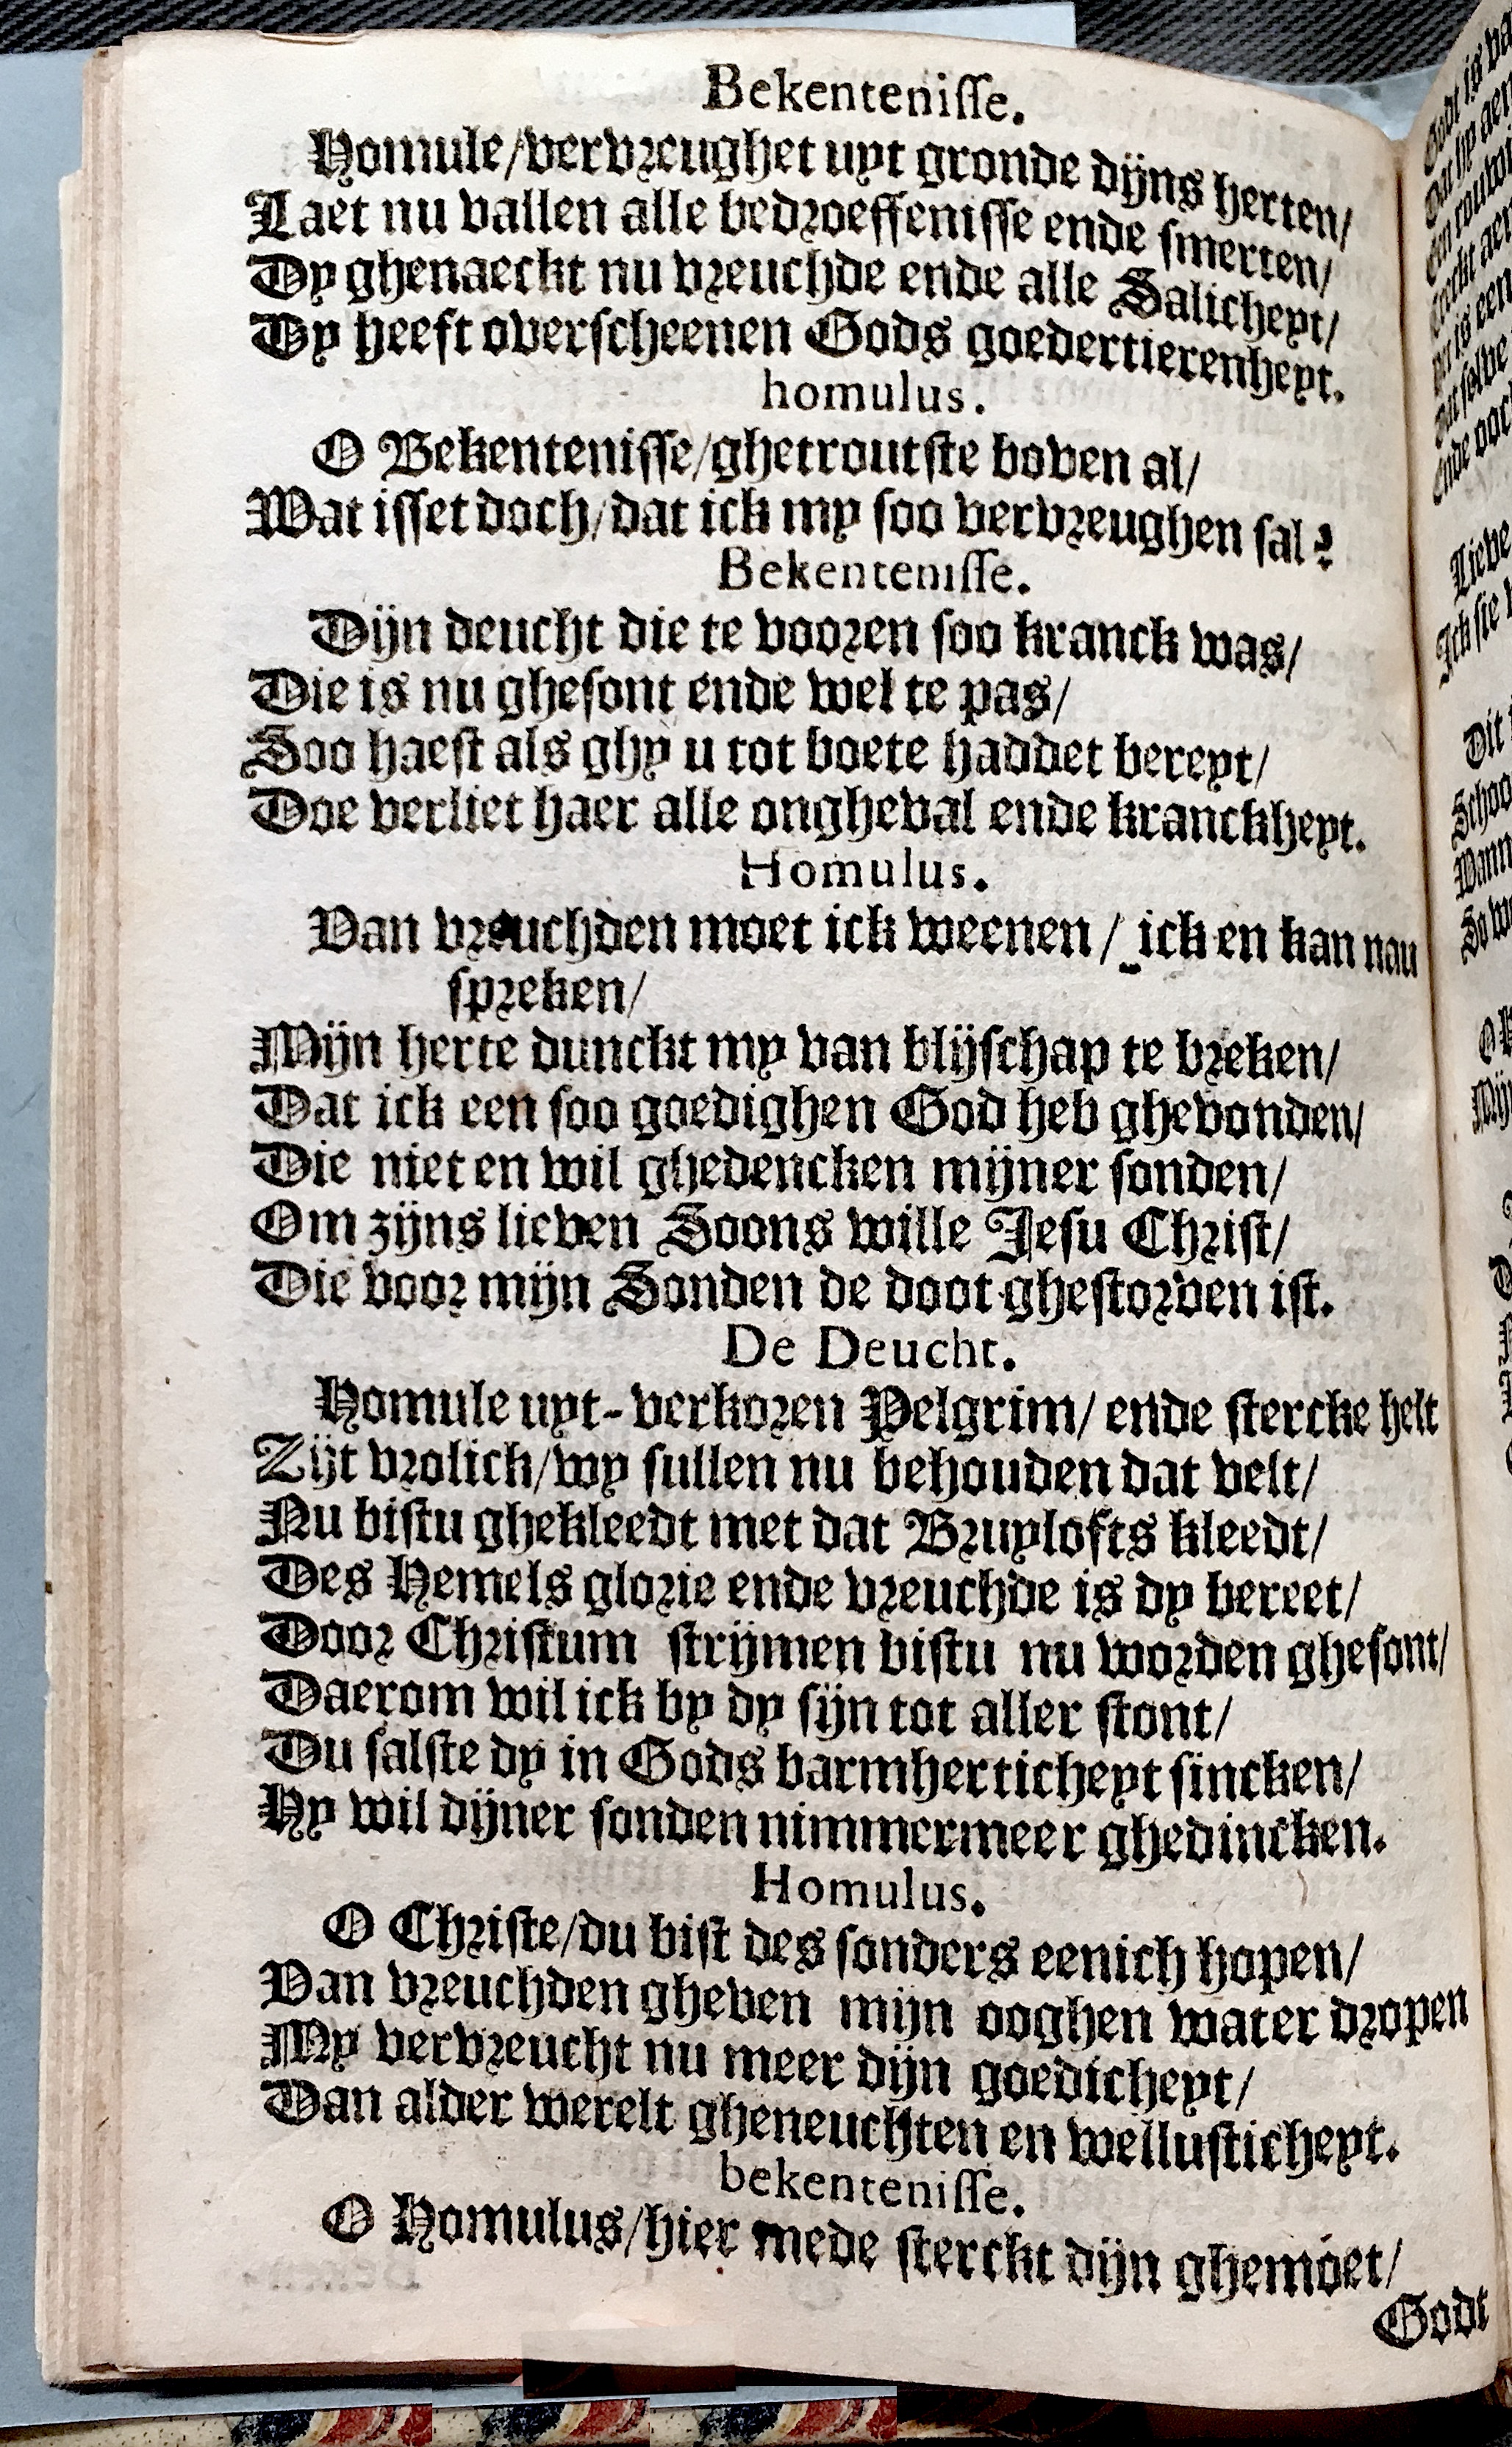 Bekentenisse.
Homule/vervreughet uyt gronde dijns herten/
Laet nu vallen alle bedroeffenisse ende smerten/
Dy ghenaeckt nu vreuchde ende alle Salicheyt/
Dy heeft overscheenen Gods goedertierenheyt.
homulus.
O Bekentenisse/ghetroutste boven al/
Wat isset doch/dat ick my soo vervreughen sal?
Bekentenisse.
Dijn deucht die te vooren soo kranck was/
Die is nu ghesont ende wel te pas/
Soo haest als ghy u tot boete haddet bereyt/
Doe verliet haer alle ongheval ende kranckheyt.
Homulus.
Van vreuchden moet ick weenen/ ick en kan nau
spreken/
Mijn herte dunckt my van blijschap te breken/
Dat ick een soo goedighen God heb ghevonden/
Die niet en wil ghedencken mijner sonden/
Om zijns lieven Soons wille Jesu Christ/
Die voor mijn Sonden de doot ghestorven ist.
De Deucht.
Homule uyt-verkoren Pelgrim/ ende stercke helt
Zijt vrolick/wy sullen nu behouden dat velt/
Nu bistu ghekleedt met dat Bruylofts kleedt/
Des Hemels glorie ende vreuchde is dy bereet/
Door Christum strijmen bistu nu worden ghesont/
Daerom wil ick by dy sijn tot aller stont/
Du salste dy in Gods barmherticheyt sincken/
Hy wil dijner sonden nimmermeer ghedincken.
Homulus.
O Christe/du bist des sonders eenich hopen/
Van vreuchden gheven mijn ooghen water dropen
My vervreucht nu meer dijn goedicheyt/
Dan alder werelt gheneuchten en wellusticheyt.
bekentenisse.
O Homulus/hier mede sterckt dijn ghemoet/
Godt